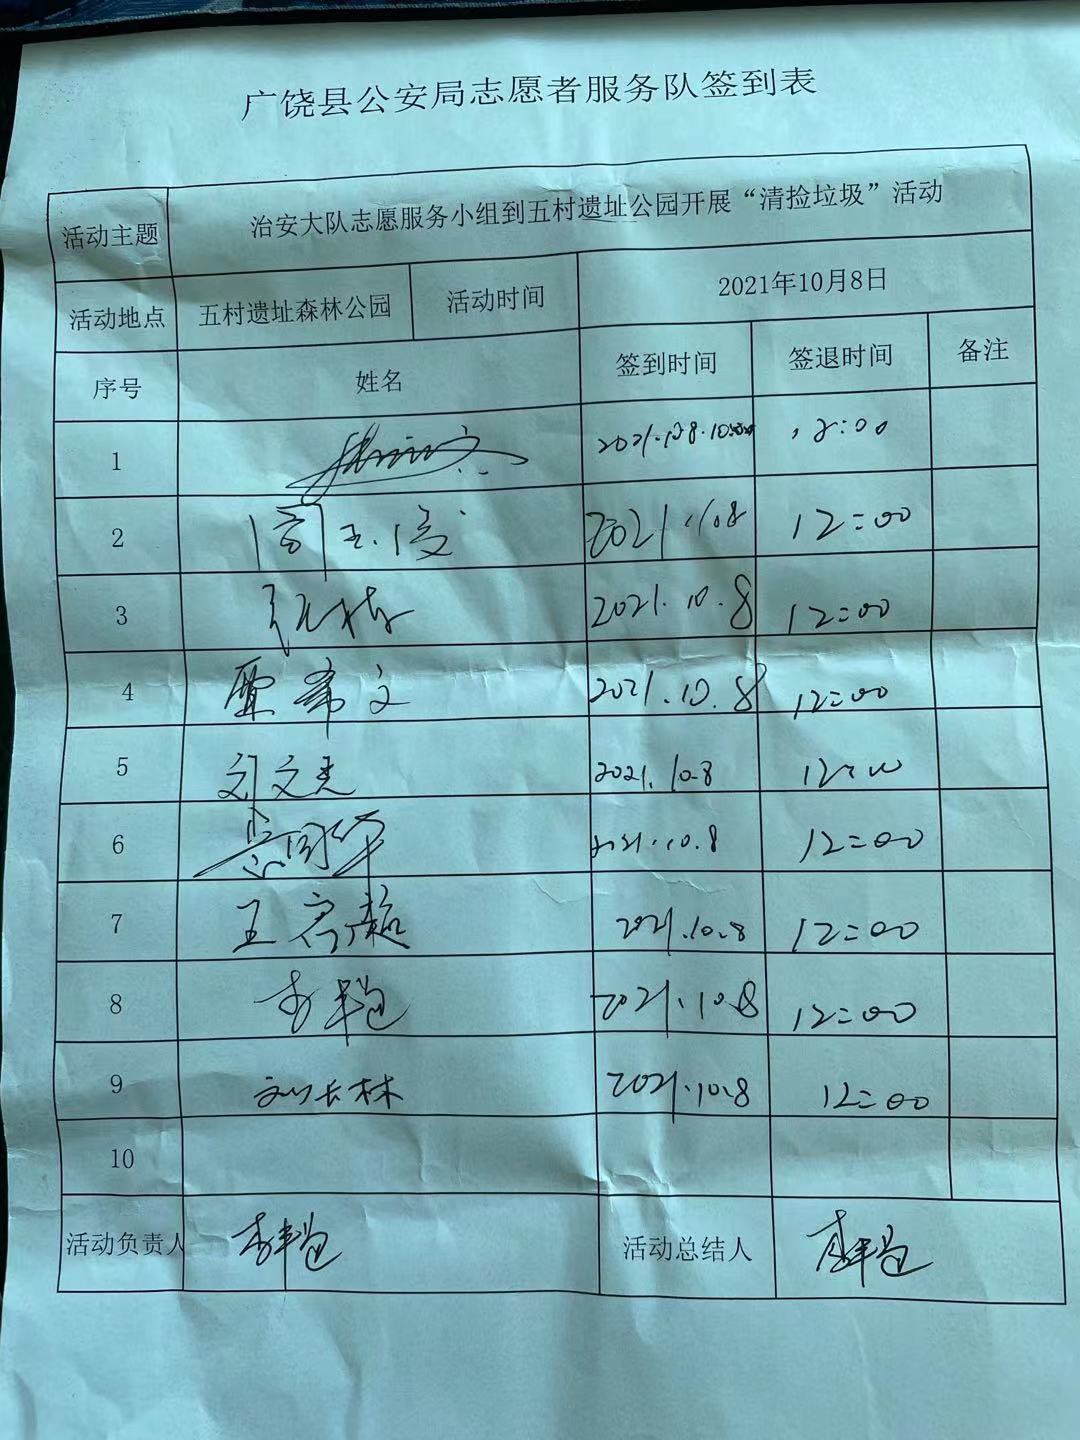 广饶县公安局志愿者服务队签到表
活动主题 治安大队志愿服务小组到五村遗址公园开展“清捡垃圾”活动
活动地点 五村遗址森林公园 活动时间 2021年10月8日
序号 姓名 签到时间 签退时间 备注
1 12:00
2 12:00
3 2021.10.8 12:00
4 贾希文 2021.10.8 12:00
5 刘文杰 2021.10.8 12:00
6 2021.10.8 12:00
7 王富超 2021.10.8 12:00
8 2021.10.8 12:00
9 刘长林 2021.10.8 12:00
10
活动负责人 活动总结人